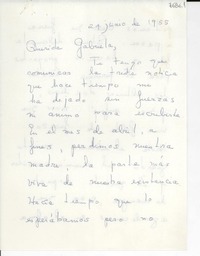 24 junio de 1955
Querida Gabriela,
Te tengo que
comunicar la triste noticia
que hace tiempo me
ha dejado sin fuerzas
ni ánimo para escribirte
En el mes de abril, a
fines, perdimos nuestra
madre, la parte más
viva de nuestra existencia
Hacía tiempo que lo
esperábamos pero no